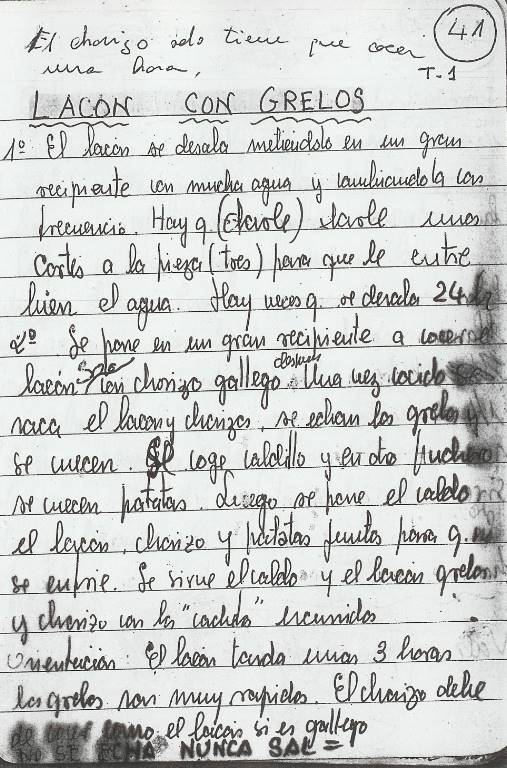 El chorizo solo tiene que cocer
una hora,
41
T-1
LACON CON GRELOS
1º El lacón se desala metiéndolo en un gran
recipiente con mucha agua y cambiandola con
frecuencia. Hay q. (darle) darle unos
cortes a la pieza (tres) para que le entre
bien el agua. Hay veces q. se desala 24 h
2º Se pone en un gran recipiente a cocer el
lacón Solo con chorizo gallego después. Una vez cocido se
saca el lacon y chorizos, se echan los grelos y
se cuecen. Se coge caldillo y en otro Puchero
se cuecen patatas. Luego se pone el caldo
el lacón, chorizo y patatas juntos para q. no
se enfrie. Se sirve el caldo y el lacón grelos
y chorizo con los "cachelos" escurridos
Orientación: El lacón tarda unas 3 horas
los grelos son muy rapidos. El chorizo debe
de cocer como el lacón si es gallego
NO SE ECHA NUNCA SAL =